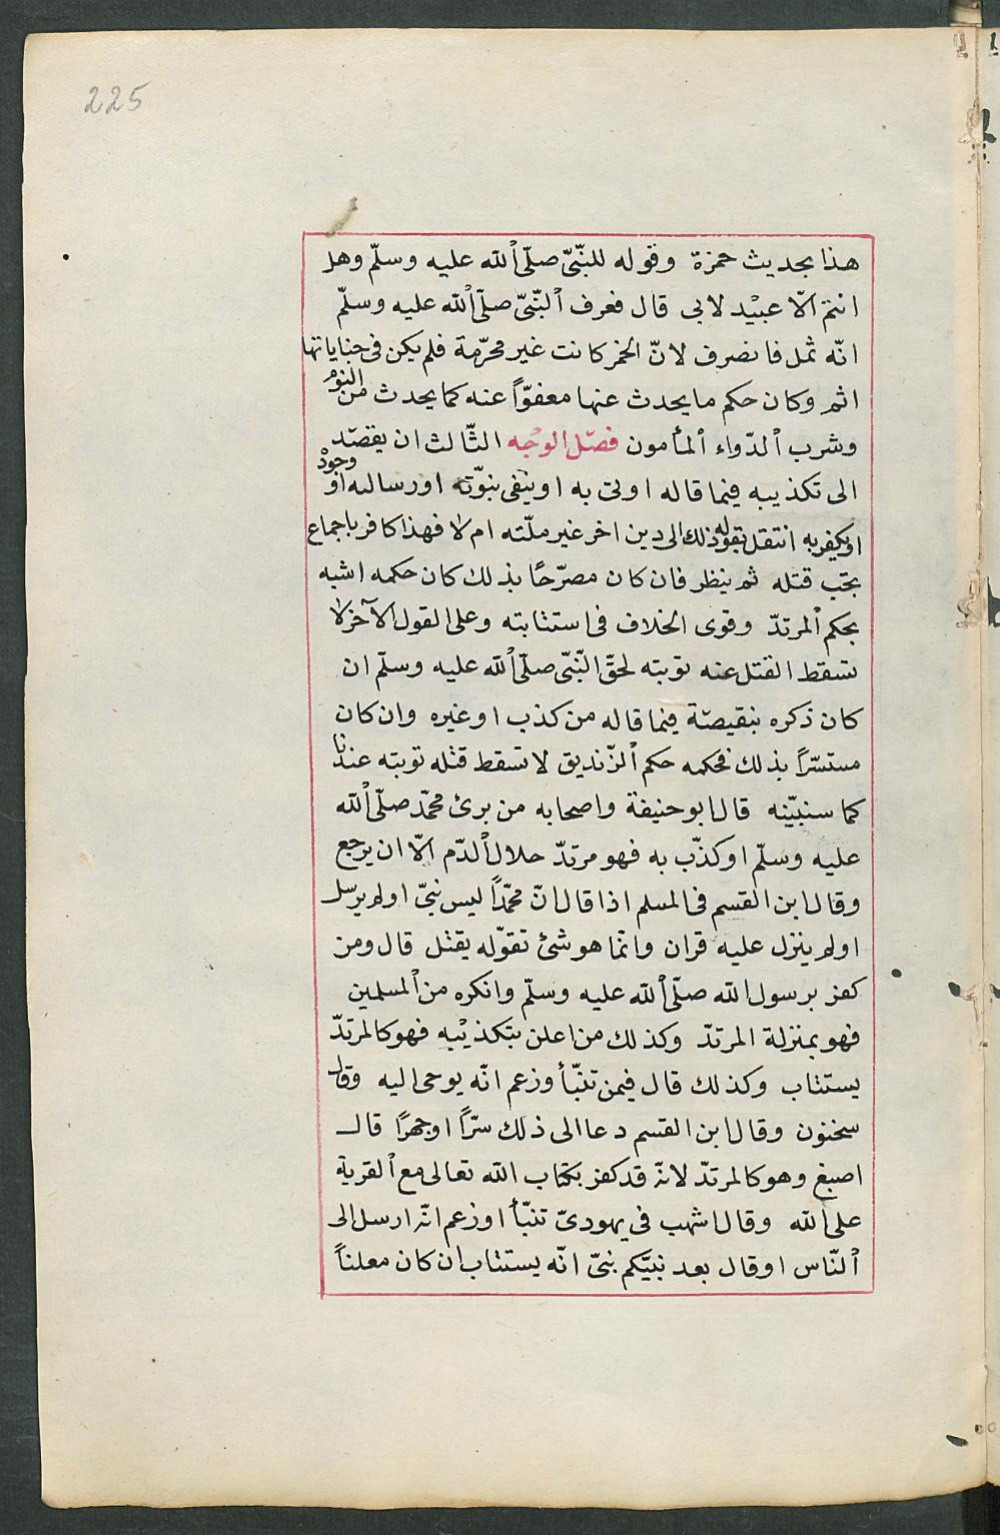 225
هذا بحديث حمزة وقوله للنّبىّ صلّى ٱلله عليه وسلّم وهل
انتم الّا عبيْد لابى قال فعرف ٱلنّبىّ صلّى ٱلله عليه وسلّم
انّه ثمل فانصرف لانّ الخمر كانت غير محرّمة فلم يكن فى جناياتها
اثم وكان حكم ما يحدث عنها معفوّاً عنه كما يحدث من النوم
وشرب ٱلدّواء ٱلمأمون فصّل الوجْه الثّالث ان يقصّد
الى تكذيبه فيما قاله او اتى به او ينفى بنوّته او رسالته او وجودْ
او يكفر به انتقل بقوله ذلك الى دين اخر غير ملّته ام لا فهذا كافر باجماع
يجّب قتله ثم ينظر فان كان مصرّحًا بذلك كان حكمه اشبه
بحكم ٱلمرتدّ وقوى الخلاف فى استتابته وعلى القول الآخر لا
تسقط القتل عنه توبته لحقّ النّبىّ صلّى ٱلله عليه وسلّم ان
كان ذكره بنقيصّة فيما قاله من كذب او غيره وان كان
مستسّراً بذلك فحكمه حكم ٱلزّنديق لا تسقط قتله توبته عندنا
كما سنبيّنه قال ابو حنيفة واصحابه من برئ محمّد صلّى ٱلله
عليه وسلّم او كذّب به فهو مرتدّ حلال ٱلدّم الّا ان يرجع
وقال ابن القسم فى المسلم اذا قال انّ محمّداً ليس نبىّ او لم يرسل
او لم ينزل عليه قران وانّما هو شئ تقوّله يقتل قال ومن
كفر برسول الله صلّى ٱلله عليه وسلّم وانكره من ٱلمسلمين
فهو بمنزلة المرتدّ وكذلك من اعلن بتكذيْبه فهو كالمرتدّ
يستتاب وكذلك قال فيمن تنبّأ وزعم انّه يوحى اليه وقال
سخنون وقال ابن القسم دعا الى ذلك سرّاً او جهرًا قال
اصبغ وهو كالمرتدّ لانّه قد كفر بكتاب الله تعالى مع ٱلفرية
على ٱلله وقال اشهب فى يهودىّ تنبّأ او زعم انّه ارسل الى
ٱلنّاس او قال بعد نبيّكم نبىّ انّه يستتاب ان كان معلناً